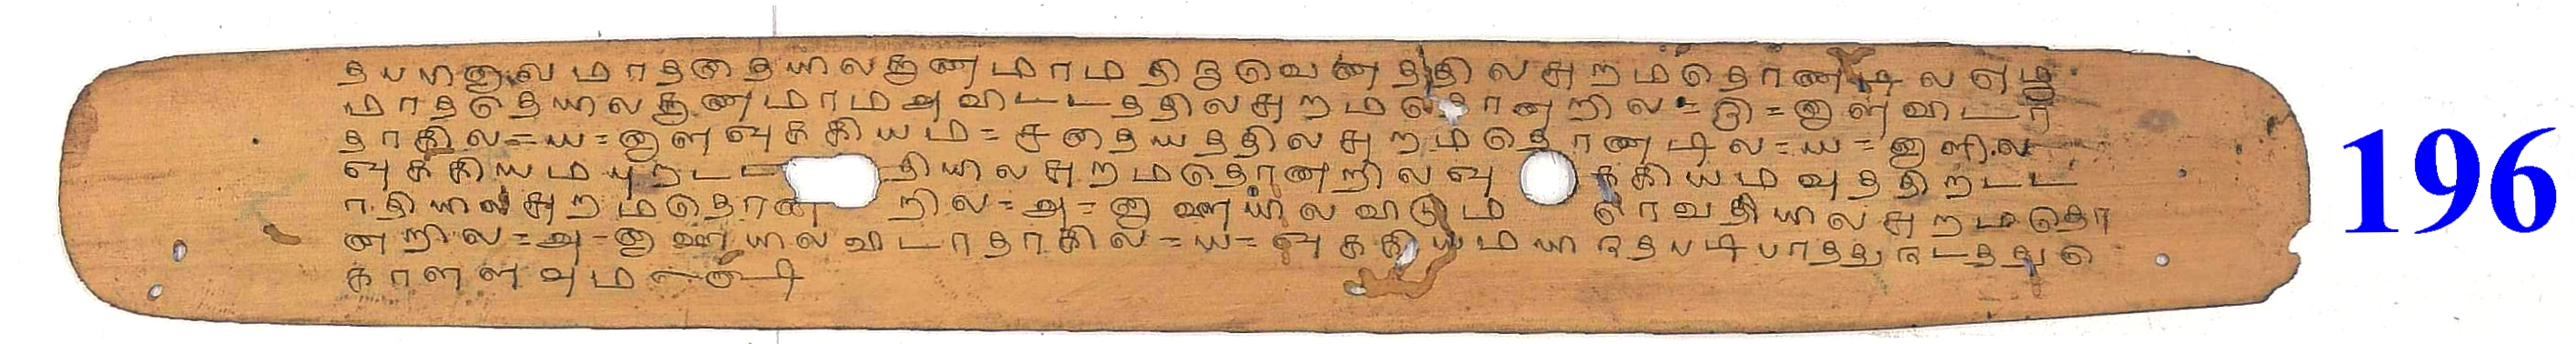 தயானுல மாதத்தையிலகுணமாம திருவொணத்திலசுறமதொணடில எழு
மாதத்தெயிலகுணமாம அவிடடத்திலசுறமதொனறில = ரு = னுள விடார்
தாகில = ய = னுளவுககியம = சதையத்திலசுறமதொணடில = ய = னுளில
வுககியமபுறடடாதியிலசுறமதொனறிலவுககியமவுத்திறடட
ாதியிலசுறமதொனறில = அ = னுணயில விடும ரெவதியிலசுறமதொ
னறில = அ = னுணயில விடாதாகில = ய = வுககியமயிநதபடி பாத்து நடத்துெ
காளளவும
196